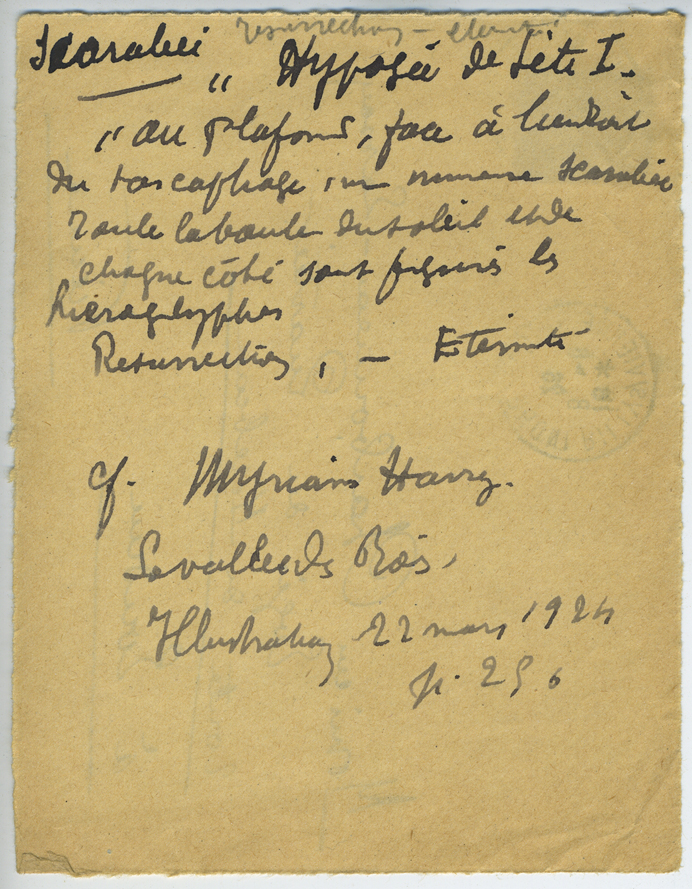 resurrection – eternité
Scarabée
" Hypogée de Séti I.
" au plafond, face à l'endroit
du sarcophage, un immense scarabée
roule la boule du soleil et de
chaque côté sont figurés les
hieroglyphes
Resurrection, – Eternité
cf. Myriam Harry.
La vallée des Rois.
Illustration 22 mars 1924
p. 256